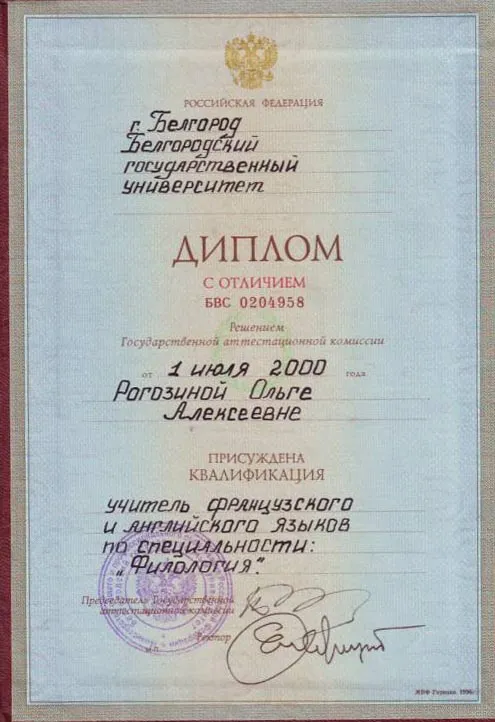 РОССИЙСКАЯ ФЕДЕРАЦИЯ
г. Белгород
Белгородский
государственный
университет
ДИПЛОМ
С ОТЛИЧИЕМ
БВС 0204958
Решением
Государственной аттестационной комиссии
от 1 июля 2000 года
Рогозиной Ольге
Алексеевне
ПРИСУЖДЕНА
КВАЛИФИКАЦИЯ
учитель французского
и английского языков
по специальности:
„Филология".
Председатель Государственной
аттестационной комиссии
Ректор
М.П.